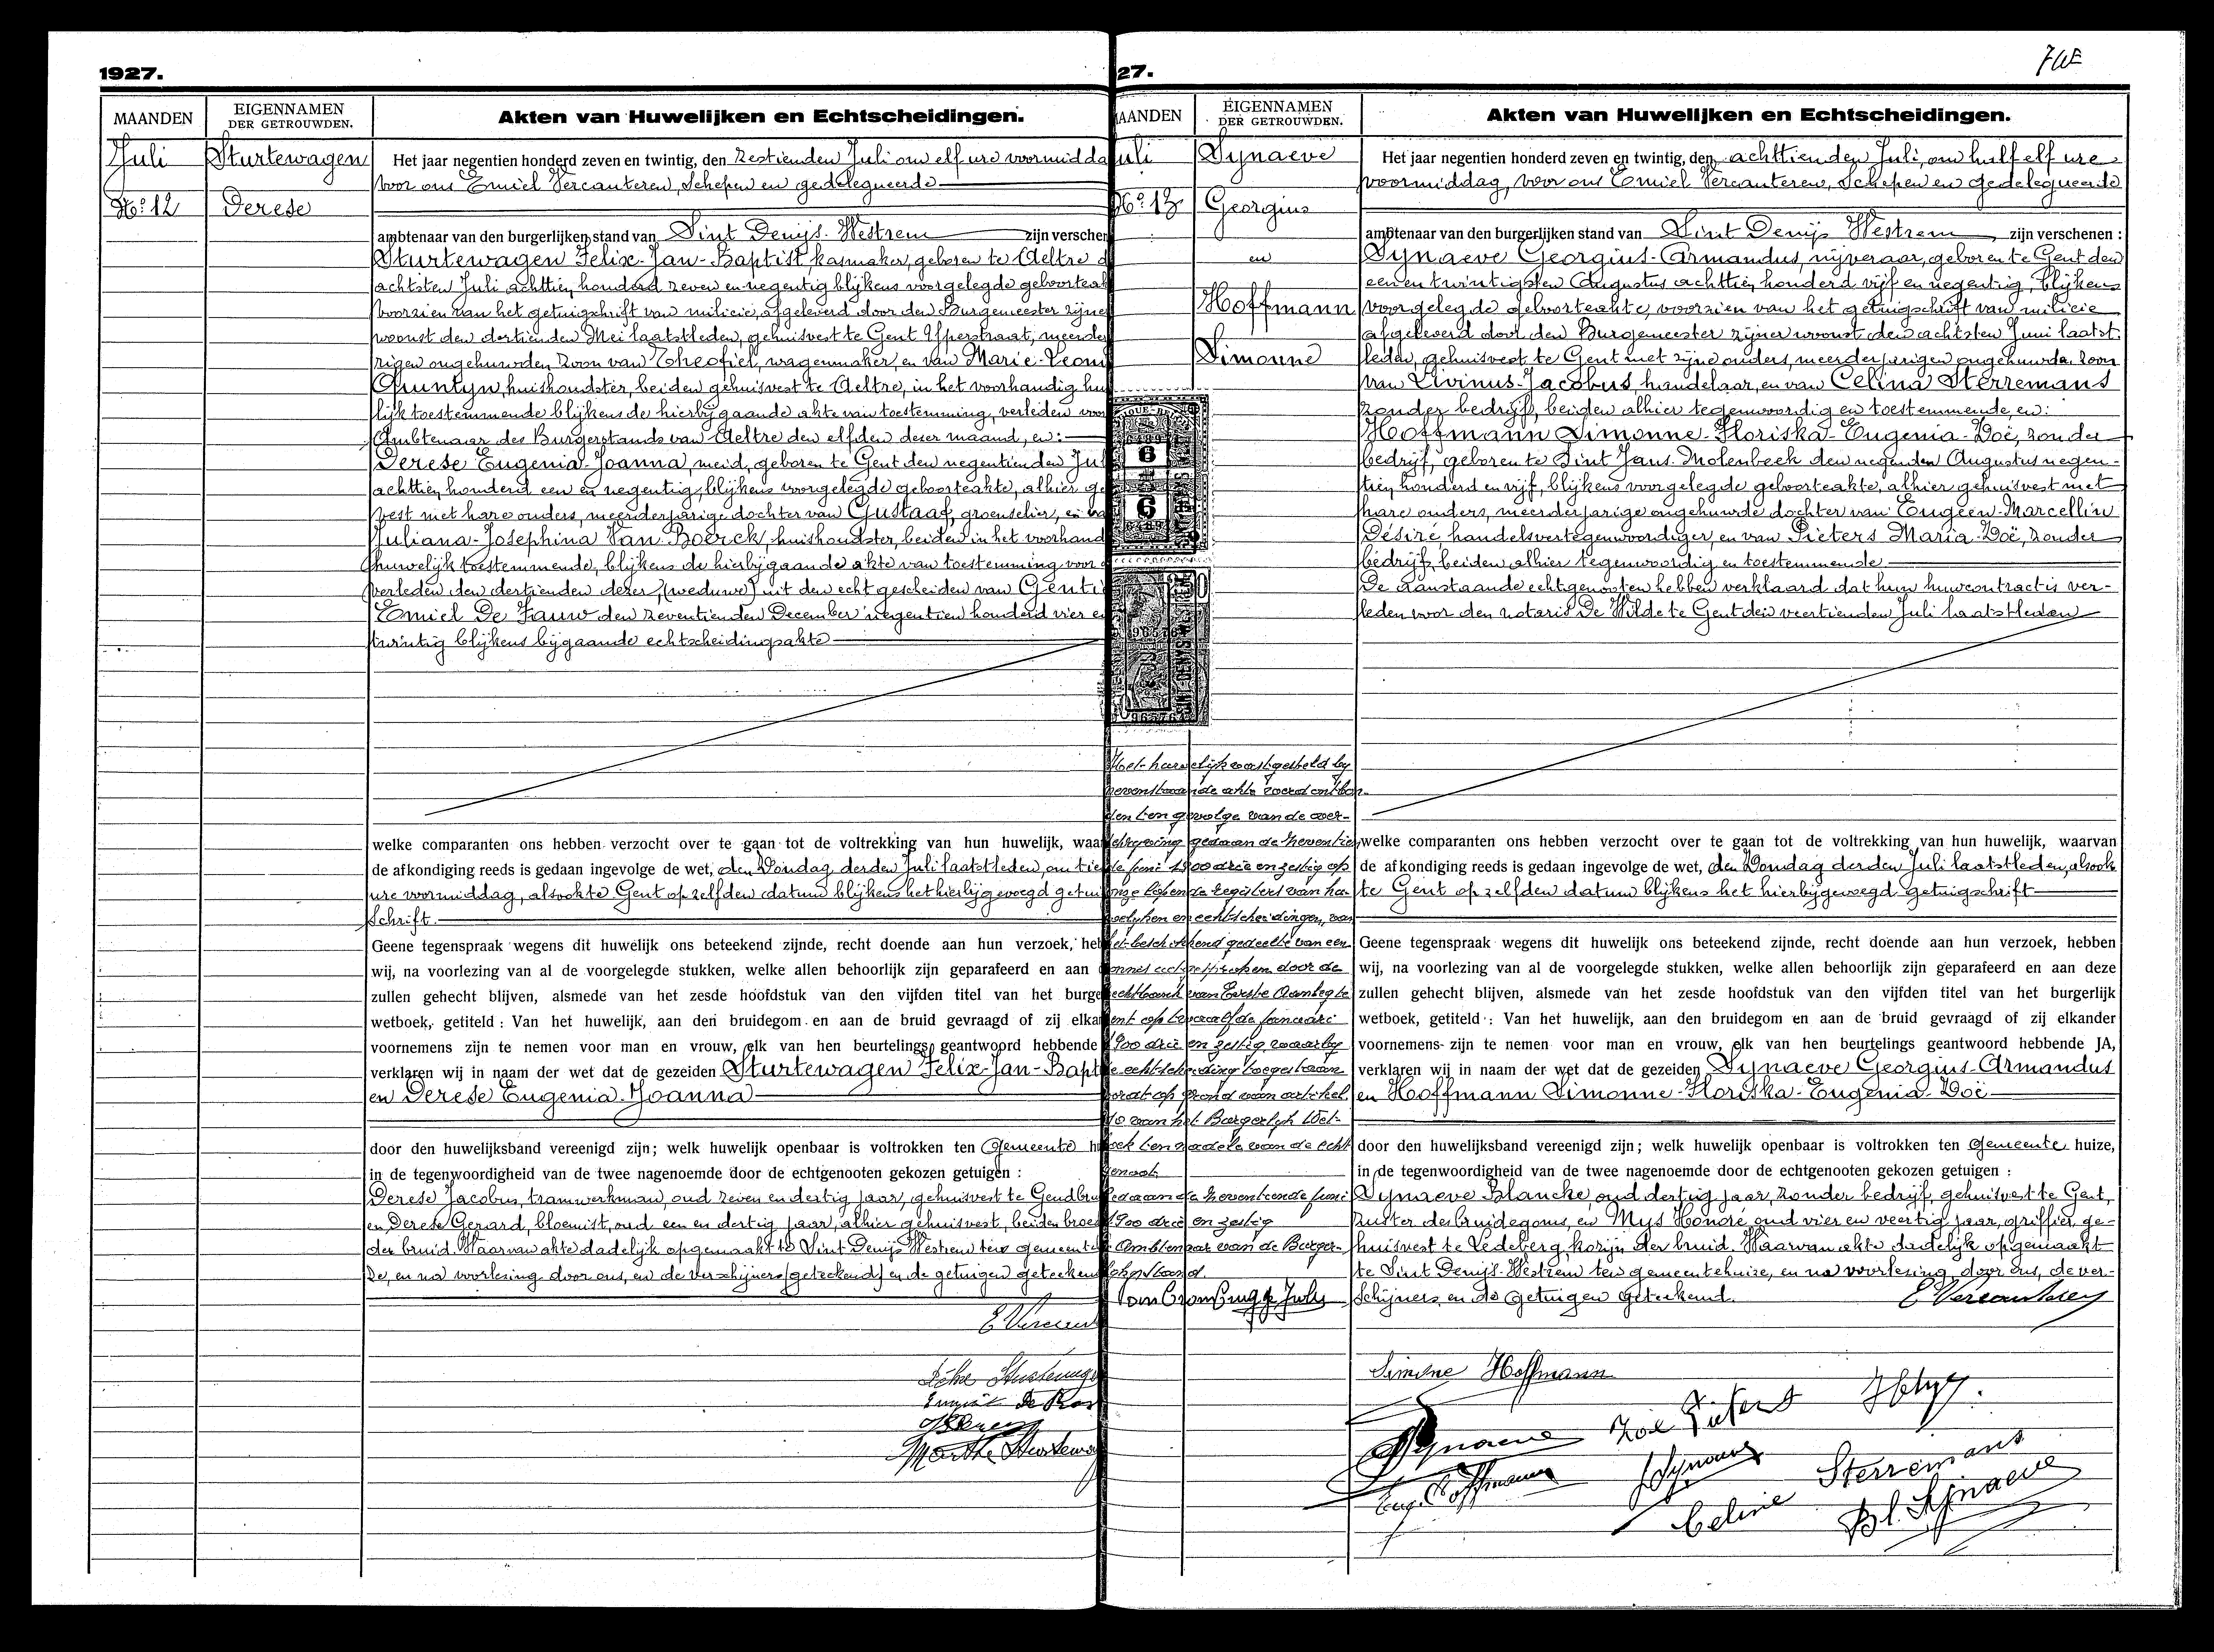 1927.
MAANDEN
EIGENNAMEN
DER GETROUWDEN.
Akten van Huwelijken en Echtscheidingen.
Juli
No. 12
Sturtewagen
Derese
Het jaar negentien honderd zeven en twintig, den zestienden Juli om elf ure voormidda
voor ons Emiel Vercauteren, Schepen en gedelegueerde
ambtenaar van den burgerlijken stand van Sint Denijs-Westrem zijn verschen
Sturtewagen Felix-Jan-Baptist, kasmaker, geboren te Aeltre d
achtsten Juli achttien honderd zeven en negentig blijkens voorgelegde geboorteak
voorzien van het getuigschrift van milicie, afgeleverd door den Burgemeester zijner
woonst den dertienden Mei laatstleden, gehuisvest te Gent Ijperstraat, meerder
rigen ongehuwden zoon van Theofiel, wagenmaker, en van Marie-Leoni
Quintyn, huishoudster, beiden gehuisvest te Aeltre, in het voorhandig hu
lijk toestemmende blijkens de hierbijgaande akte van toestemming, verleden voor
Ambtenaar des Burgerstands van Aeltre den elfden dezer maand, en:
Derese Eugenia-Joanna, meid, geboren te Gent den negentienden Jul
achttien honderd een en negentig, blijkens voorgelegde geboorteakte, alhier ge
vest met hare ouders, meerderjarige dochter van Gustaaf, groenselier, en va
Juliana-Josephina Van Boerck, huishoudster, beiden in het voorhand
huwelijk toestemmende, blijkens de hierbijgaande akte van toestemming voor
verleden den dertienden dezer, (weduwe) uit den echt gescheiden van Genti
Emiel De Fauw den zeventienden December negentien honderd vier en
twintig blijkens bijgaande echtscheidingsakte
welke comparanten ons hebben verzocht over te gaan tot de voltrekking van hun huwelijk, waar
de afkondiging reeds is gedaan ingevolge de wet, den Zondag derden Juli laatstleden, om tien
ure voormiddag, alsook te Gent op zelfden datum blijkens het hierbijgevoegd getui
schrift.
Geene tegenspraak wegens dit huwelijk ons beteekend zijnde, recht doende aan hun verzoek, heb
wij, na voorlezing van al de voorgelegde stukken, welke allen behoorlijk zijn geparafeerd en aan
zullen gehecht blijven, alsmede van het zesde hoofdstuk van den vijfden titel van het burge
wetboek, getiteld : Van het huwelijk, aan den bruidegom en aan de bruid gevraagd of zij elkan
voornemens zijn te nemen voor man en vrouw, elk van hen beurtelings geantwoord hebbende
verklaren wij in naam der wet dat de gezeiden Sturtewagen Felix-Jan-Bapt
en Derese Eugenia-Joanna
door den huwelijksband vereenigd zijn; welk huwelijk openbaar is voltrokken ten Gemeente h
in de tegenwoordigheid van de twee nagenoemde door de echtgenooten gekozen getuigen :
Derese Jacobus, tramwerkman, oud zeven en dertig jaar, gehuisvest te Gendbru
en Derese Gerard, bloemist, oud een en dertig jaar, alhier gehuisvest, beiden broed
der bruid. Waarvan akte dadelijk opgemaakt te Sint Denijs Westrem ten gemeente
ze, en na voorlezing door ons, en de verschijners (geteekend) en de getuigen geteeken
E Vercaut
Marthe Sturtewa
27.
MAANDEN
EIGENNAMEN
DER GETROUWDEN.
Akten van Huwelijken en Echtscheidingen.
Juli
No. 13
Synaeve
Georgius
en
Hoffmann
Simonne
6
6
Het huwelijk vastgesteld by
bovenstaande akte werd ontbon-
den ten gevolge van de over-
schrijving gedaan de zeventien
de juni 1900 drie en zestig op
onze lopende registers van hu-
welyken en echtscheidingen, van
het beschikkend gedeelte van een
vonnis uitgesproken door de
rechtbank van Eerste Aanleg te
Gent op twaalfde januari
1900 drie en zestig, waarby
de echtscheiding toegestaan
werd op grond van artikel
van het Burgerlyk Wet-
boek ten nadele van de echt
genoot
Gedaan de zeventiende juni
1900 drie en zestig
De Ambtenaar van de Burger-
lyke Stand.
Het jaar negentien honderd zeven en twintig, den achttienden Juli, om half elf ure
voormiddag, voor ons Emiel Vercauteren, Schepen en gedelegueerde
ambtenaar van den burgerlijken stand van Sint Denijs Westrem zijn verschenen :
Synaeve Georgius-Armandus, nijveraar, geboren te Gent den
een en twintigsten Augustus achttien honderd vijf en negentig, blijkens
voorgelegde geboorteakte, voorzien van het getuigschrift van milicie
afgeleverd door den Burgemeester zijner woonst den achtsten Juni laatst-
leden, gehuisvest te Gent met zijne ouders, meerderjarigen ongehuwden zoon
van Livinus-Jacobus, handelaar, en van Celina Sterremans
zonder bedrijf, beiden alhier tegenwoordig en toestemmende, en:
Hoffmann Simonne-Floriska-Eugenia-Zoë, zonder
bedrijf, geboren te Sint Jans-Molenbeek den negenden Augustus negen-
tien honderd en vijf, blijkens voorgelegde geboorteakte, alhier gehuisvest met
hare ouders, meerderjarige ongehuwde dochter van Eugeen-Marcellin
Désiré, handelsvertegenwoordiger, en van Pieters Maria-Zoë, zonder
bedrijf, beiden alhier tegenwoordig en toestemmende
De aanstaande echtgenooten hebben verklaard dat hun huwcontract is ver-
leden voor den notaris De Wilde te Gent den veertienden Juli laatstleden
welke comparanten ons hebben verzocht over te gaan tot de voltrekking van hun huwelijk, waarvan
de afkondiging reeds is gedaan ingevolge de wet, den Zondag derden Juli laatstleden, alsook
te Gent op zelfden datum blijkens het hierbijgevoegd getuigschrift
Geene tegenspraak wegens dit huwelijk ons beteekend zijnde, recht doende aan hun verzoek, hebben
wij, na voorlezing van al de voorgelegde stukken, welke allen behoorlijk zijn geparafeerd en aan deze
zullen gehecht blijven, alsmede van het zesde hoofdstuk van den vijfden titel van het burgerlijk
wetboek, getiteld : Van het huwelijk, aan den bruidegom en aan de bruid gevraagd of zij elkander
voornemens zijn te nemen voor man en vrouw, elk van hen beurtelings geantwoord hebbende JA,
verklaren wij in naam der wet dat de gezeiden Synaeve Georgius-Armandus
en Hoffmann Simonne-Floriska-Eugenia-Zoë
door den huwelijksband vereenigd zijn; welk huwelijk openbaar is voltrokken ten Gemeente huize,
in de tegenwoordigheid van de twee nagenoemde door de echtgenooten gekozen getuigen :
Synaeve Blancke, oud dertig jaar, zonder bedrijf, gehuisvest te Gent,
zuster des bruidegoms, en Mys Honoré, oud vier en veertig jaar, griffier, ge-
huisvest te Ledeberg, kozijn der bruid. Waarvan akte dadelijk opgemaakt
te Sint Denijs-Westrem ten gemeentehuize, en na voorlezing door ons, de ver-
schijners en de getuigen geteekend.
E Vercauteren
Simone Hoffmann
Synaeve Zoë Pieters HMys.
Eug. Hoffmann Synaeve
Celine Sterremans
Bl. Synaeve